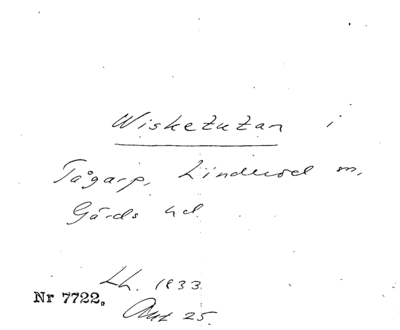 Wisketutan i
Tågarp, Linderöd sn,
Gärds hd.
Lh. 1933.
Nr 7722.
Ant 25.